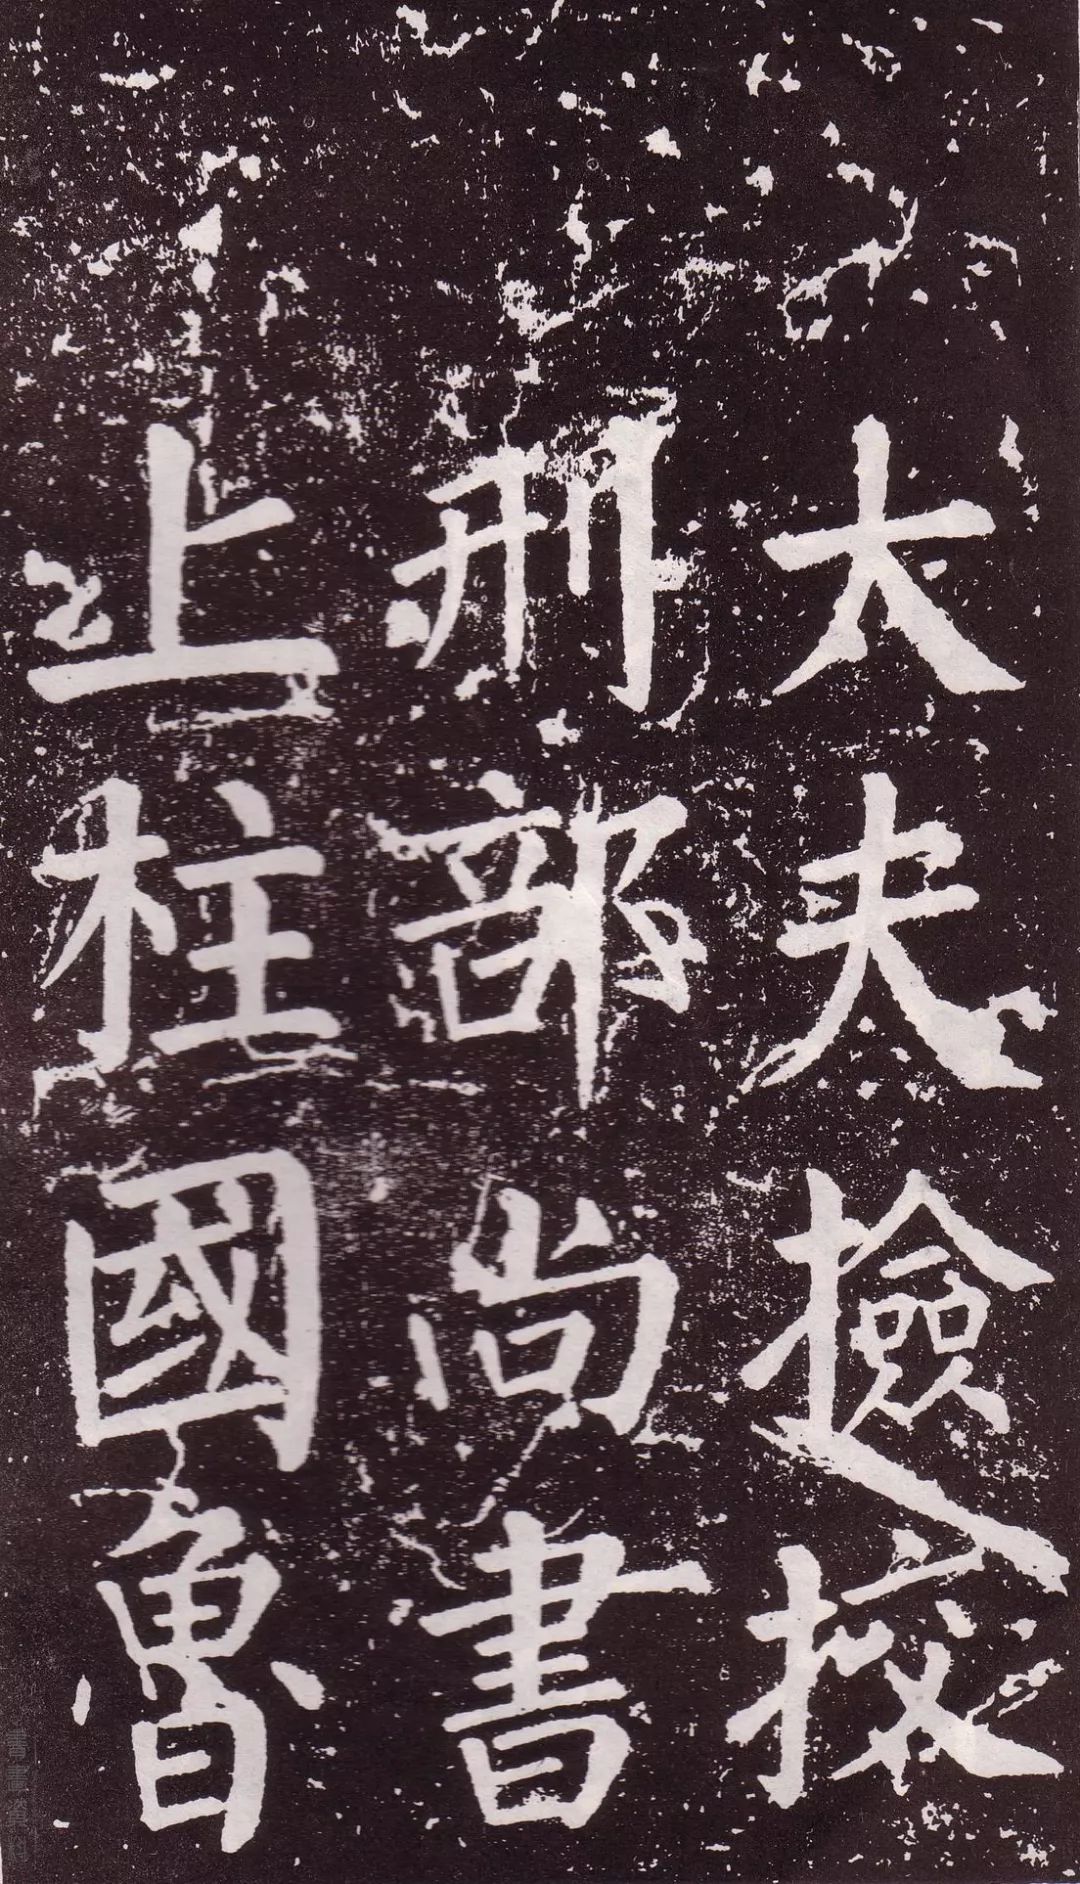 大夫撿挍
刑部尚書
上柱國魯